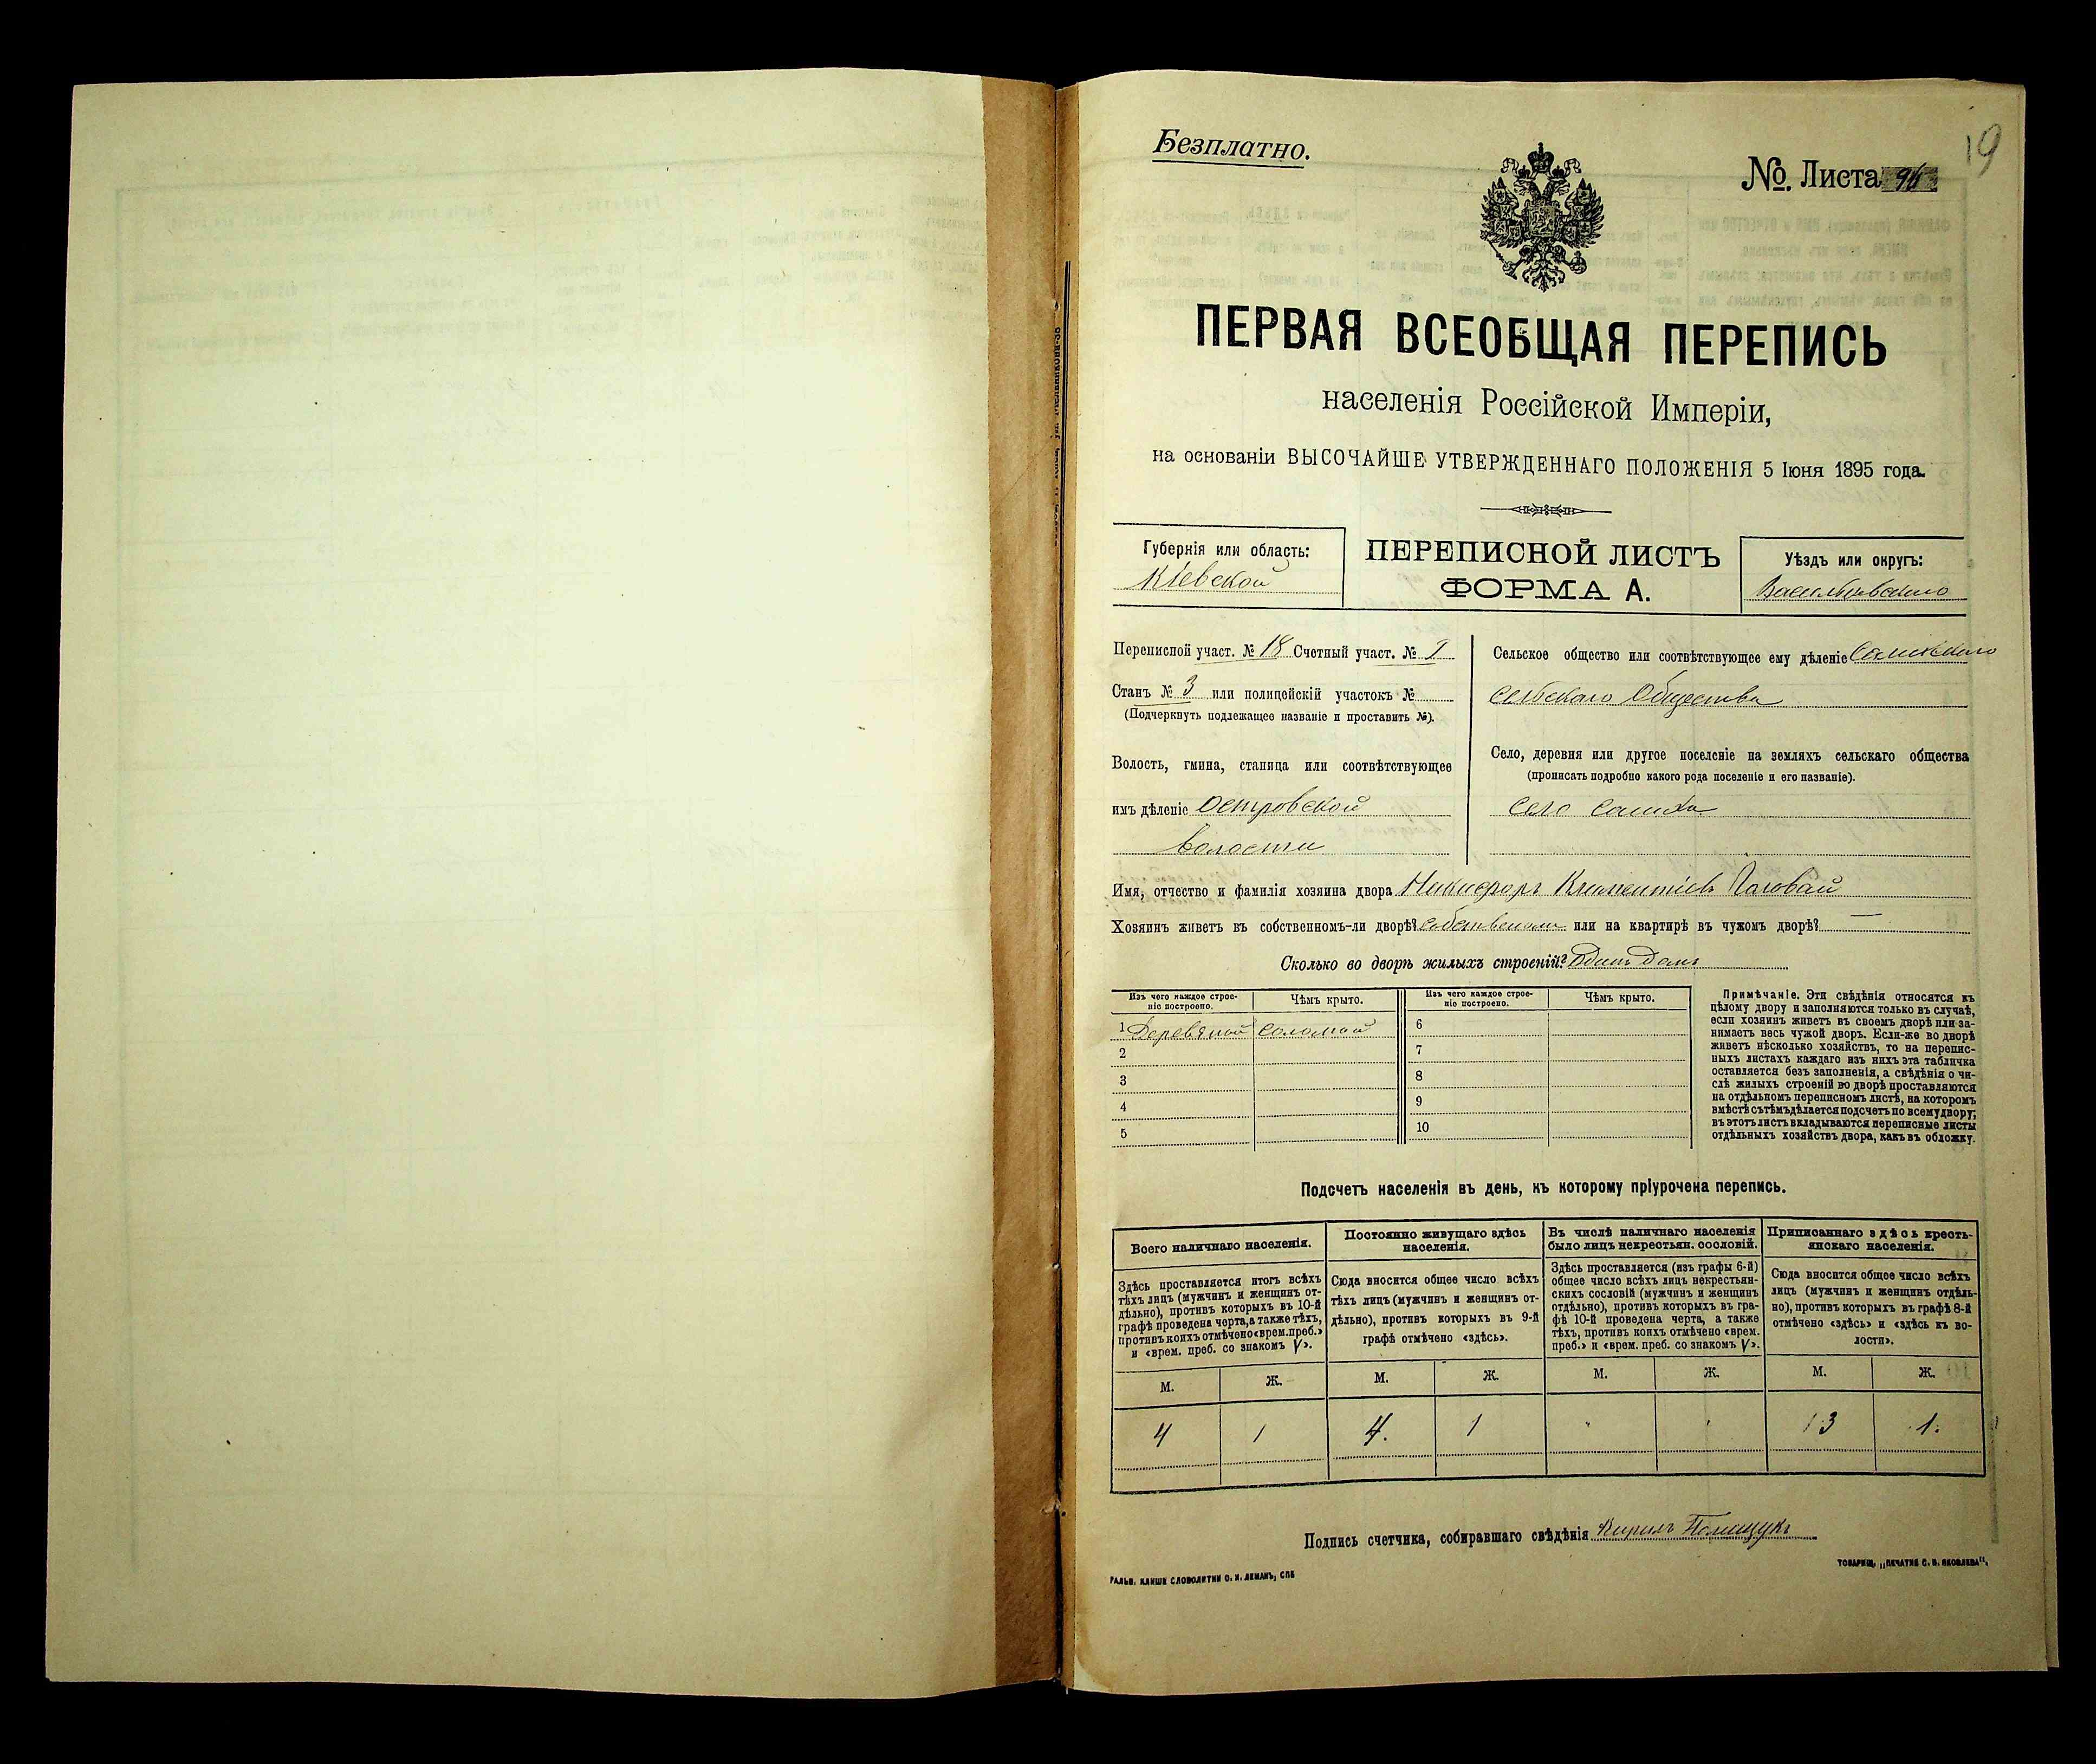 19
Безплатно.
No. Листа
ПЕРВАЯ ВСЕОБЩАЯ ПЕРЕПИСЬ
населенія Россійской Имперіи,
на основаніи ВЫСОЧАЙШЕ УТВЕРЖДЕННАГО ПОЛОЖЕНІЯ 5 Іюня 1895 года.
Губернія или область:
Кіевской
ПЕРЕПИСНОЙ ЛИСТЪ
ФОРМА А.
Уѣздъ или округъ:
Васильковскаго
Переписной участ. № 18 Счетный участ. №
Станъ № 3 или полицейскій участокъ №
(Подчеркнуть подлежащее названіе и проставить №).
Волость, гмина, станица или соотвѣтствующее
имъ дѣленіе Островской
волости
Сельское общество или соотвѣтствующее ему дѣленіе
сельскаго Общества
Село, деревня или другое поселеніе на земляхъ сельскаго общества
(прописать подробно какого рода поселеніе и его названіе).
Село
Имя, отчество и фамилія хозяина двора Никифоръ Климентіевъ
Хозяинъ живетъ въ собственномъ-ли дворѣ? собственомъ или на квартирѣ въ чужомъ дворѣ? —
Сколько во дворѣ жилыхъ строеній? Одинъ домъ
Изъ чего каждое строе-
ніе построено.
Чѣмъ крыто.
Изъ чего каждое строе-
ніе построено.
Чѣмъ крыто.
1 Деревяной соломой
2
3
4
5
6
7
8
9
10
Примѣчаніе. Эти свѣдѣнія относятся къ
цѣлому двору и заполняются только въ случаѣ,
если хозяинъ живетъ въ своемъ дворѣ или за-
нимаетъ весь чужой дворъ. Если-же во дворѣ
живетъ нѣсколько хозяйствъ, то на перепис-
ныхъ листахъ каждаго изъ нихъ эта табличка
оставляется безъ заполненія, а свѣдѣнія о чи-
слѣ жилыхъ строеній во дворѣ проставляются
на отдѣльномъ переписномъ листѣ, на которомъ
вмѣстѣ съ тѣмъ дѣлается подсчетъ по всему двору;
въ этотъ листъ вкладываются переписные листы
отдѣльныхъ хозяйствъ двора, какъ въ обложку.
Подсчетъ населенія въ день, къ которому пріурочена перепись.
Всего наличнаго населенія.
Здѣсь проставляется итогъ всѣхъ
тѣхъ лицъ (мужчинъ и женщинъ от-
дѣльно), противъ которыхъ въ 10-й
графѣ проведена черта, а также тѣхъ,
противъ коихъ отмѣчено «врем. преб.»
и «врем. преб. со знакомъ V».
Постоянно живущаго здѣсь
населенія.
Сюда вносится общее число всѣхъ
тѣхъ лицъ (мужчинъ и женщинъ от-
дѣльно), противъ которыхъ въ 9-й
графѣ отмѣчено «здѣсь».
Въ числѣ наличнаго населенія
было лицъ некрестьян. сословій.
Здѣсь проставляется (изъ графы 6-й)
общее число всѣхъ лицъ некрестьян-
скихъ сословій (мужчинъ и женщинъ
отдѣльно), противъ которыхъ въ гра-
фѣ 10-й проведена черта, а также
тѣхъ, противъ коихъ отмѣчено «врем.
преб.» и «врем. преб. со знакомъ V».
Приписаннаго здѣсь кресть-
янскаго населенія.
Сюда вносится общее число всѣхъ
лицъ (мужчинъ и женщинъ отдѣль-
но), противъ которыхъ въ графѣ 8-й
отмѣчено «здѣсь» и «здѣсь къ во-
лости».
М. Ж. М. Ж. М. Ж. М. Ж.
4 1 4. 1 " " 3 1.
Подпись счетчика, собиравшаго свѣдѣнія Кирилъ Полищукъ
ГАЛЬВ. КЛИШЕ СЛОВОЛИТНИ О. И. ЛЕМАНЪ, СПБ
ТОВАРИЩ. „ПЕЧАТНЯ С. П. ЯКОВЛЕВА“.